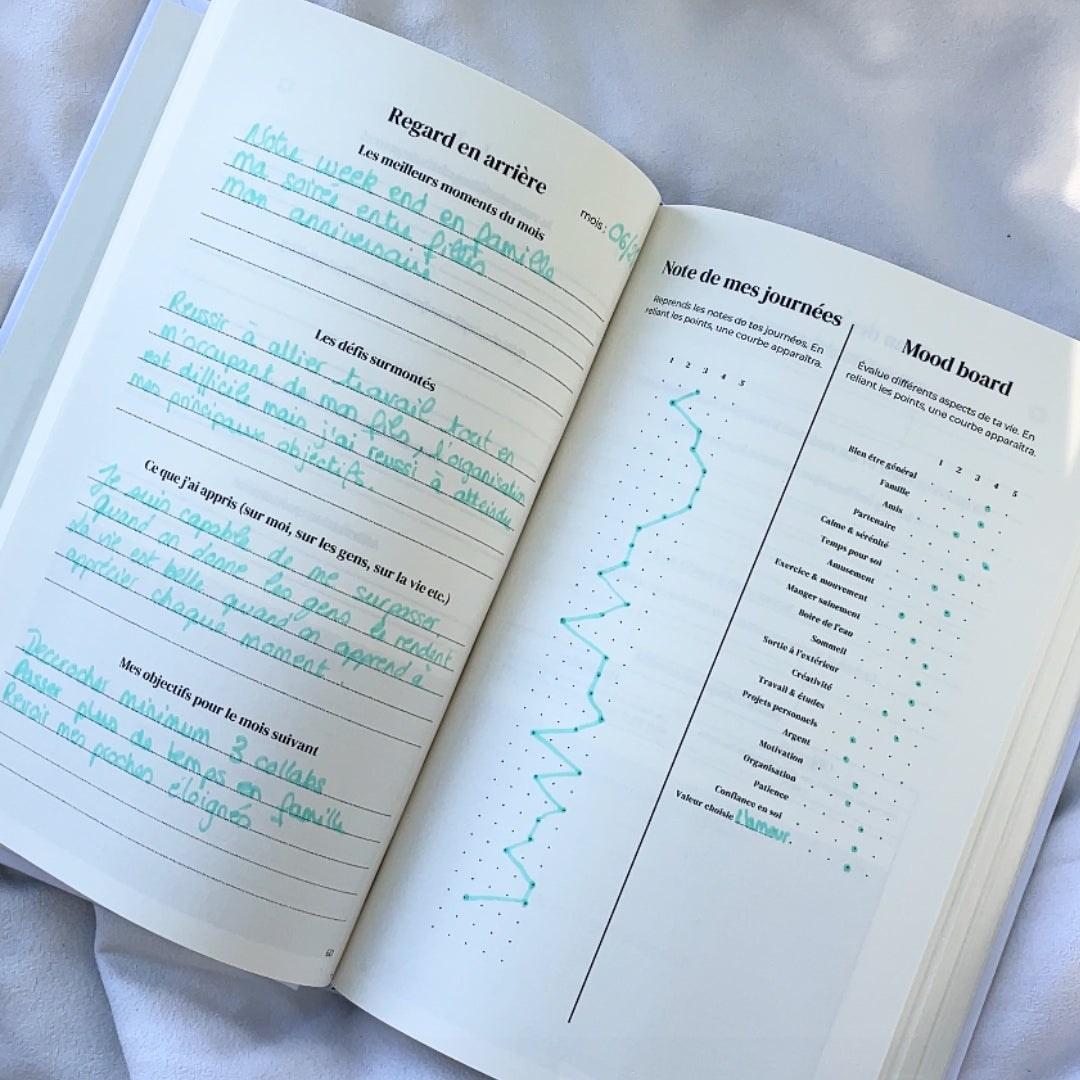 Regard en arrière
mois : 06/
Les meilleurs moments du mois
Notre week end en famille
ma soirée entre filles
mon anniversaire
Les défis surmontés
Réussir à allier travail tout en
m'occupant de mon fils, l'organisation
est difficile mais j'ai réussi à atteindre
mes principaux objectifs.
Ce que j'ai appris (sur moi, sur les gens, sur la vie etc.)
Je suis capable de me surpasser,
Quand on donne les gens le rendent
La vie est belle quand on apprend à
apprécier chaque moment.
Mes objectifs pour le mois suivant
Décrocher minimum 3 collabs
Passer plus de temps en famille
Revoir mes proches éloignés
60
Note de mes journées
Reprends les notes de tes journées. En
reliant les points, une courbe apparaîtra.
1 2 3 4 5
Mood board
Évalue différents aspects de ta vie. En
reliant les points, une courbe apparaîtra.
1 2 3 4 5
Bien être général
Famille
Amis
Partenaire
Calme & sérénité
Temps pour soi
Amusement
Exercice & mouvement
Manger sainement
Boire de l'eau
Sommeil
Sortie à l'extérieur
Créativité
Travail & études
Projets personnels
Argent
Motivation
Organisation
Patience
Confiance en soi
Valeur choisie L'amour